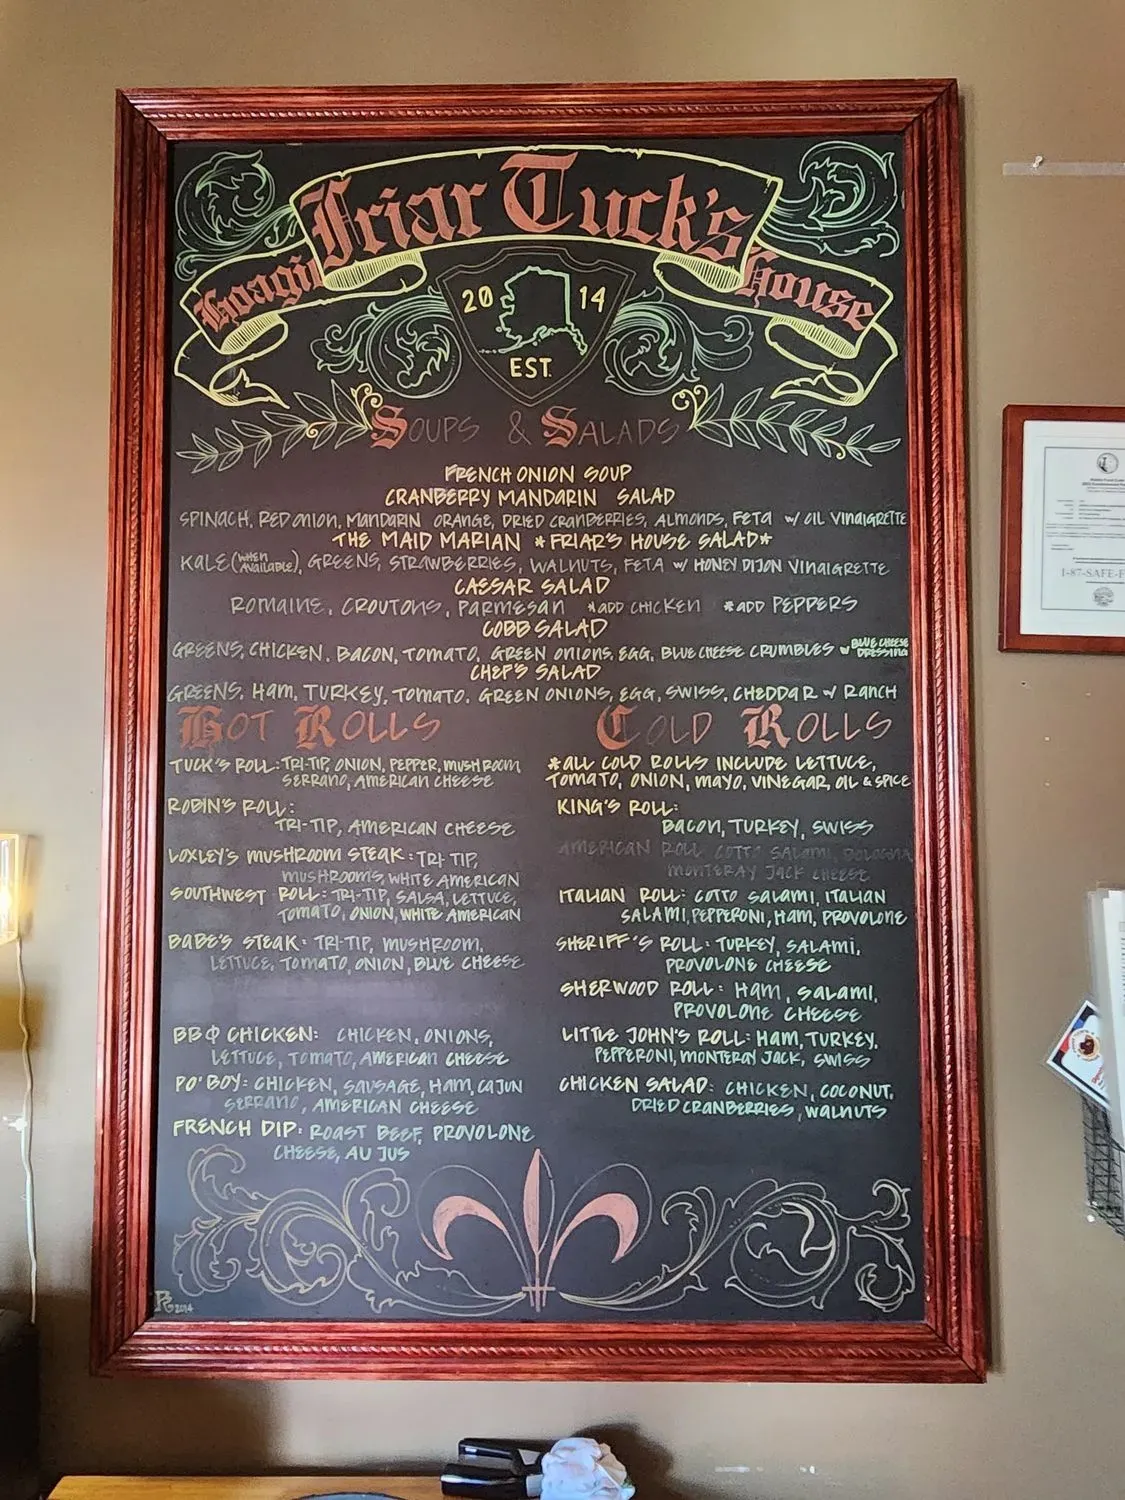 Friar Tuck's
Hoagie House
20 14
EST.
SOUPS & SALADS
FRENCH ONION SOUP
CRANBERRY MANDARIN SALAD
SPINACH, RED ONION, MANDARIN ORANGE, DRIED CRANBERRIES, ALMONDS, FETA w/ OIL VINAIGRETTE
THE MAID MARIAN *FRIAR'S HOUSE SALAD*
KALE (WHEN AVAILABLE), GREENS, STRAWBERRIES, WALNUTS, FETA w/ HONEY DIJON VINAIGRETTE
CAESAR SALAD
ROMAINE, CROUTONS, PARMESAN *ADD CHICKEN *ADD PEPPERS
COBB SALAD
GREENS, CHICKEN, BACON, TOMATO, GREEN ONIONS, EGG, BLUE CHEESE CRUMBLES w/ BLUE CHEESE DRESSING
CHEF'S SALAD
GREENS, HAM, TURKEY, TOMATO, GREEN ONIONS, EGG, SWISS, CHEDDAR w/ RANCH
HOT ROLLS
TUCK'S ROLL: TRI-TIP, ONION, PEPPER, MUSHROOM
SERRANO, AMERICAN CHEESE
ROBIN'S ROLL:
TRI-TIP, AMERICAN CHEESE
LOXLEY'S MUSHROOM STEAK: TRI TIP,
MUSHROOMS, WHITE AMERICAN
SOUTHWEST ROLL: TRI-TIP, SALSA, LETTUCE,
TOMATO, ONION, WHITE AMERICAN
BABE'S STEAK: TRI-TIP, MUSHROOM,
LETTUCE, TOMATO, ONION, BLUE CHEESE
BBQ CHICKEN: CHICKEN, ONIONS,
LETTUCE, TOMATO, AMERICAN CHEESE
PO'BOY: CHICKEN, SAUSAGE, HAM, CAJUN
SERRANO, AMERICAN CHEESE
FRENCH DIP: ROAST BEEF, PROVOLONE
CHEESE, AU JUS
COLD ROLLS
*ALL COLD ROLLS INCLUDE LETTUCE,
TOMATO, ONION, MAYO, VINEGAR, OIL & SPICE
KING'S ROLL:
BACON, TURKEY, SWISS
AMERICAN ROLL COTTO SALAMI, BOLOGNA,
MONTERAY JACK CHEESE
ITALIAN ROLL: COTTO SALAMI, ITALIAN
SALAMI, PEPPERONI, HAM, PROVOLONE
SHERIFF'S ROLL: TURKEY, SALAMI,
PROVOLONE CHEESE
SHERWOOD ROLL: HAM, SALAMI,
PROVOLONE CHEESE
LITTLE JOHN'S ROLL: HAM, TURKEY,
PEPPERONI, MONTERAY JACK, SWISS
CHICKEN SALAD: CHICKEN, COCONUT,
DRIED CRANBERRIES, WALNUTS
2014
1-87-SAFE-F